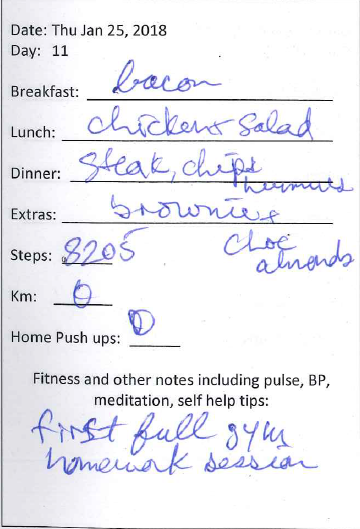 Date: Thu Jan 25, 2018
Day: 11
Breakfast: bacon
Lunch: chicken + salad
Dinner: steak, chips
hummus
Extras: brownies
choc
almonds
Steps: 8205
Km: 0
Home Push ups: 0
Fitness and other notes including pulse, BP,
meditation, self help tips:
first full gym
homework session